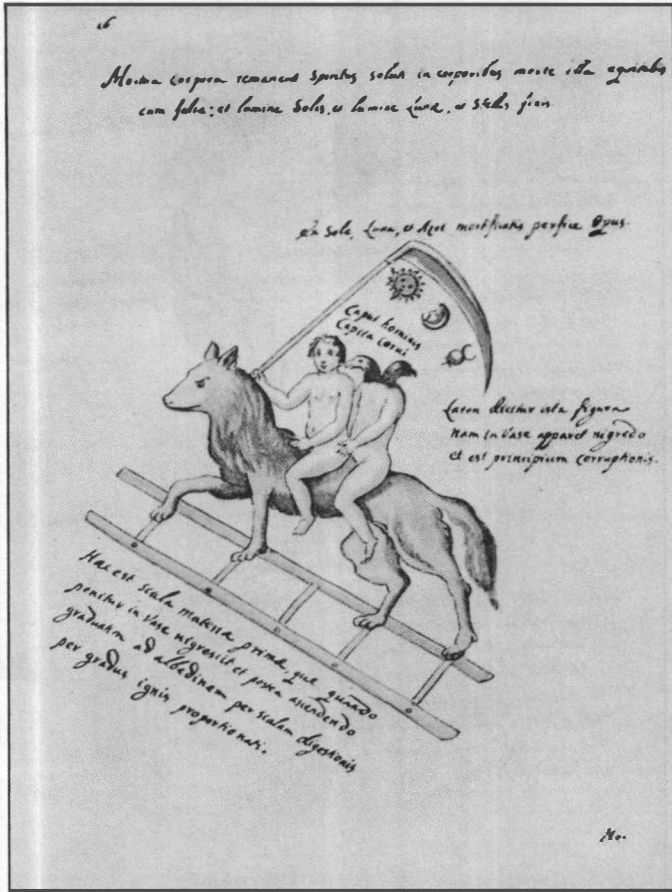 16
Mortua corpora remanent Spiritus solum in corporibus morte ista equitabis
cum falce; et lumine Solis, et lumine Lunæ, et Stellis fixis
In Sole, Luna, et Azot mortificatis perfice Opus.
Caput hominis
Capita Corui
Laton dicitur ista figura
nam in vase apparet nigredo
et est principium corruptionis.
Hæc est scala materia prima, que quando
ponitur in vase nigrescit et postea ascendendo
gradatim ad albedinem per scalam digestionis
per gradus ignis proportionati.
Mo.